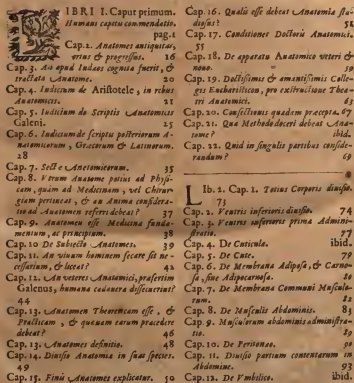 LIBRI I. Caput primum.
Humani capitis commendatio.
pag. 1
Cap. 2. Anatomes antiquitas,
ortus & progressus. 16
Cap. 3. An apud Indaos cognita fuerit, &
tractata Anatome. 20
Cap. 4. Iudicium de Aristotele, in rebus
Anatomicis. 21
Cap. 5. Iudicium de Scriptis Anatomicis
Galeni. 25
Cap. 6. Iudicium de scriptis posteriorum A-
natomicorum, Græcorum & Latinorum.
28
Cap. 7. Sectæ Anatomicorum. 35
Cap. 8. Vtrum Anatome potius ad Physi-
cam, quàm ad Medicinam, vel Chirur-
giam pertineat, & an Anima considera-
tio ad Anatomen referri debeat? 37
Cap. 9. Anatomen esse Medicinæ funda-
mentum, ac principium. 38
Cap. 10 De Subiecto Anatomes. 39
Cap. 11. An vivum hominem secare sit ne-
cessarium, & liceat? 42
Cap. 12. An veteres Anatomici, præsertim
Galenus, humana cadavera dissecuerint?
44
Cap. 13. Anatomen Theoreticam esse, &
Practicam, & quænam earum præcedere
debeat? 46
Cap. 13. Anatomes definitio. 48
Cap. 14. Diuisio Anatomiæ in suas species.
49
Cap. 15. Finis Anatomes explicatur. 50
Cap. 16. Qualis esse debeat Anatomiæ stu-
diosus? 51
Cap. 17. Conditiones Doctoris Anatomici.
55
Cap. 18. De apparatu Anatomico veteri &
nouo. 59
Cap. 19. Doctissimis & amantissimis Colle-
gis Eucharisticon, pro exstructione Thea-
tri Anatomici. 63
Cap. 20. Consectiones quædam præcepta. 67
Cap. 21. Qua Methodo doceri debeat Ana-
tome? ibid.
Cap. 22. Quid in singulis partibus conside-
randum? 69
Lib. 2. Cap. 1. Totius Corporis diuisio.
73
Cap. 2. Ventris inferioris diuisio. 74
Cap. 3. Ventris inferioris prima Admini-
stratio. 77
Cap. 4. De Cuticula. ibid.
Cap. 5. De Cute. 79
Cap. 6. De Membrana Adiposa, & Carno-
sa, siue Adipocarnosa. 80
Cap. 7. De Membrana Communi Musculo-
rum. 82
Cap. 8. De Musculis Abdominis. 83
Cap. 9. Musculorum abdominis administra-
tio.
Cap. 10. De Peritonæo. 90
Cap. 11. Diuisio partium contentarum in
Abdomine. 93
Cap. 12. De Vmbilico. ibid.